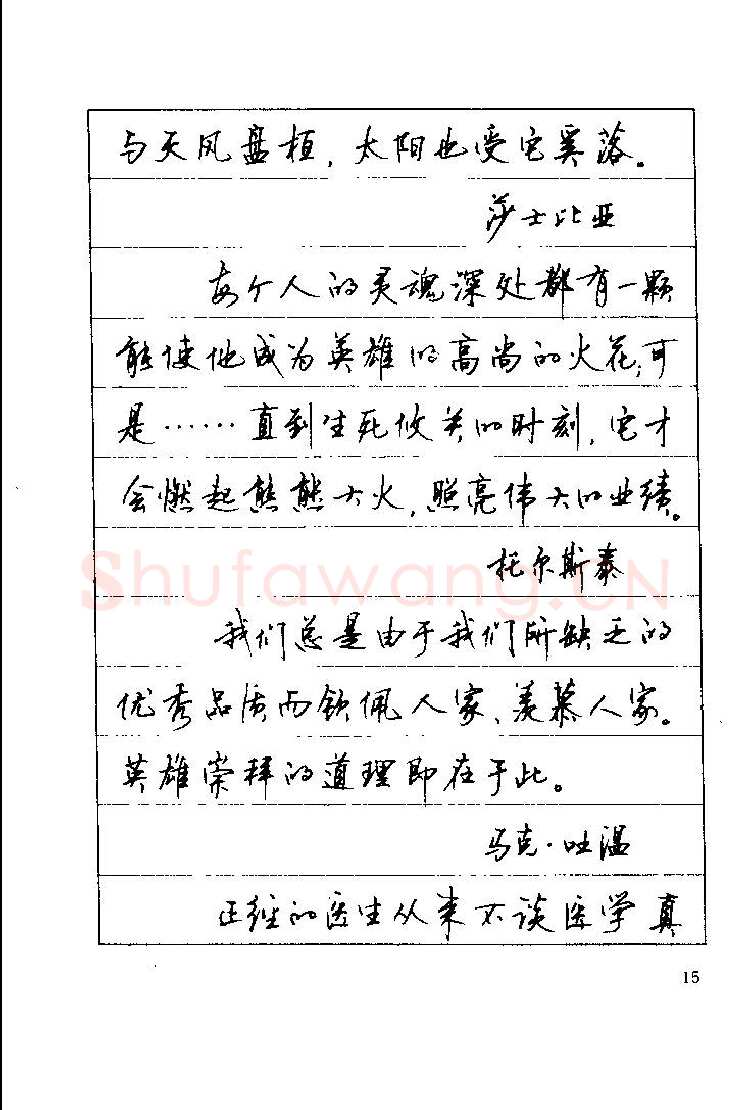 与天风盘桓，太阳也受它奚落。
莎士比亚
每个人的灵魂深处都有一颗
能使他成为英雄的高尚的火花；可
是……直到生死攸关的时刻，它才
会燃起熊熊大火，照亮伟大的业绩。
Shufawang.CN
托尔斯泰
我们总是由于我们所缺乏的
优秀品质而钦佩人家、羡慕人家。
英雄崇拜的道理即在于此。
马克·吐温
正经的医生从来不谈医学真
15